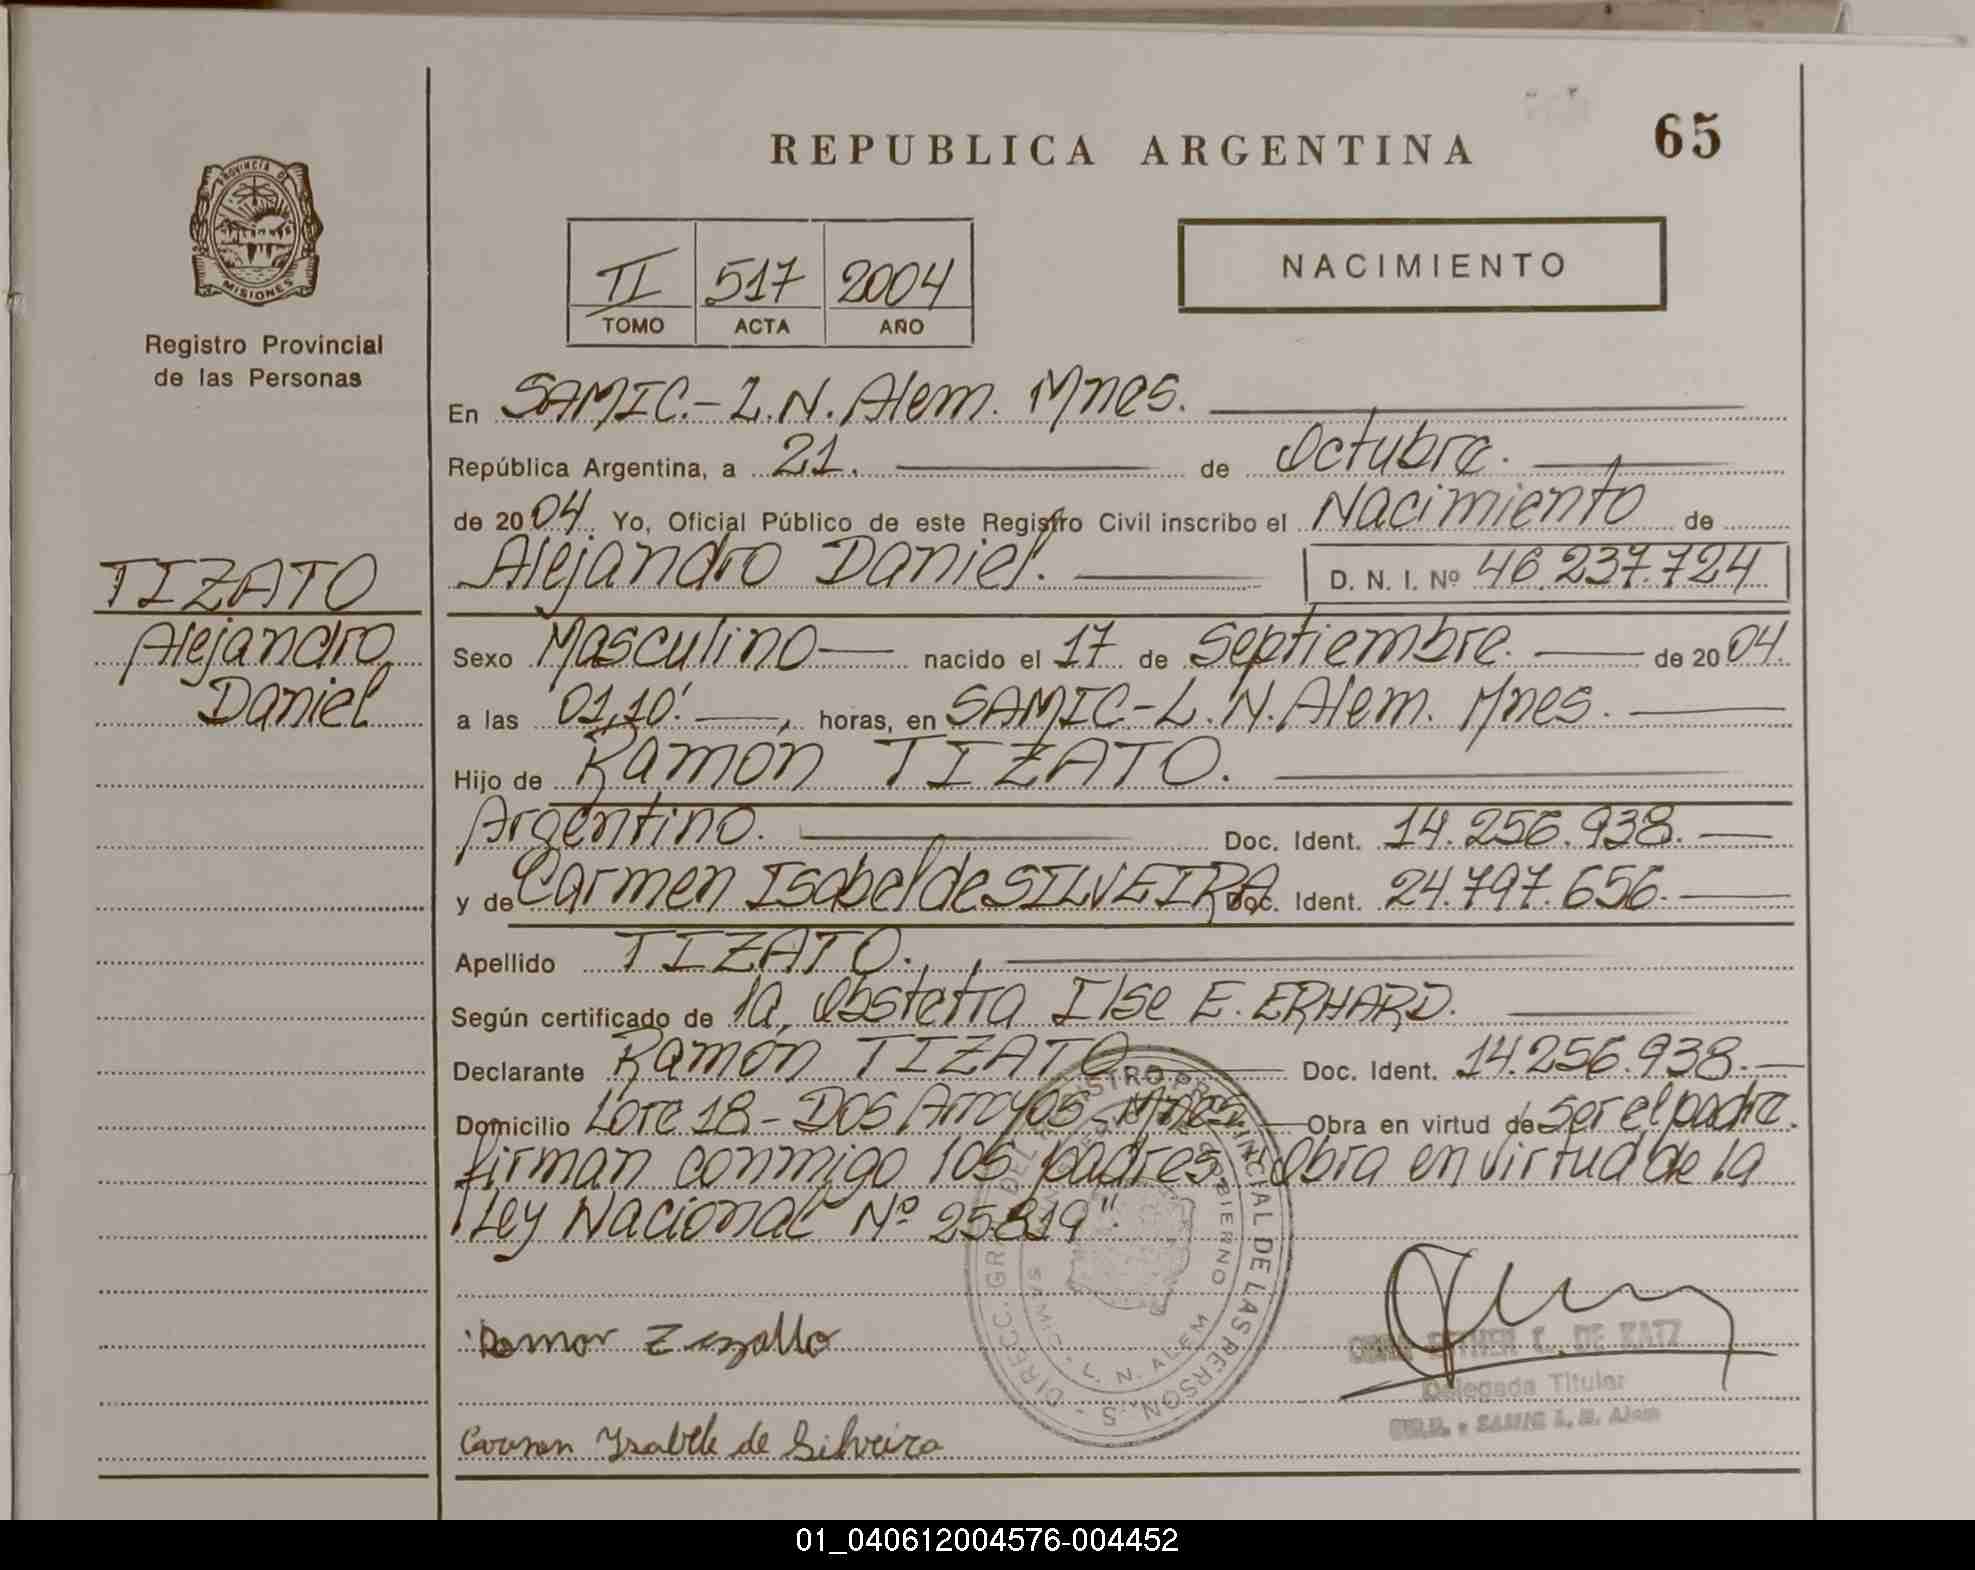 REPUBLICA ARGENTINA
65
PROVINCIA DE
MISIONES
Registro Provincial
de las Personas
TI 517 2004
TOMO ACTA AÑO
NACIMIENTO
TIZATO
Alejandro
Daniel
En SAMIC.- L.N. Alem. Mnes.
República Argentina, a 21. de Octubre.
de 2004 Yo, Oficial Público de este Registro Civil inscribo el Nacimiento de
Alejandro Daniel. D. N. I. Nº 46.237.724
Sexo Masculino nacido el 17 de Septiembre. de 2004.
a las 01,10'. horas, en SAMIC-L.N. Alem. Mnes.
Hijo de Ramón TIZATO.
Argentino. Doc. Ident. 14.256.938.
y de Carmen Isabel de SILVEIRA Doc. Ident. 24.797.656.
Apellido TIZATO.
Según certificado de la, Obstetra Ilse E. ERHARD.
Declarante Ramón TIZATO Doc. Ident. 14.256.938.
Domicilio Lote 18 - Dos Arroyos Mnes. Obra en virtud de ser el padre.
firman conmigo los padres, "Obra en virtud de la
Ley Nacional Nº 25819".
DIRECC. GR DEL REGISTRO PROVINCIAL DE LAS PERSONAS
GOBIERNO
SAMIC - L. N. ALEM
Ramon
Carmen Ysabele de Silveira
ESTHER C. DE KATZ
Delegada Titular
SAMIC L. N. Alem
01_040612004576-004452